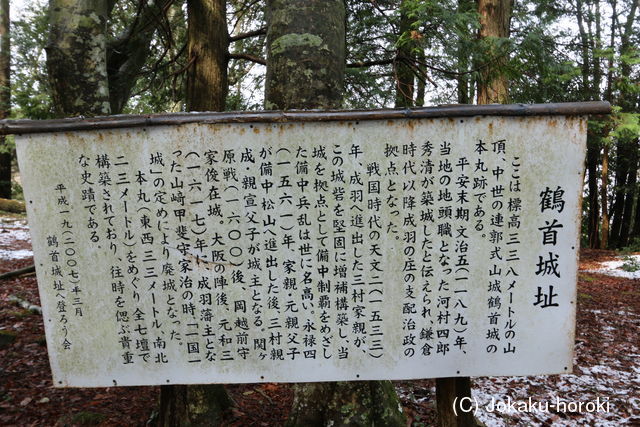 鶴首城址
ここは標高三三八メートルの山
頂、中世の連郭式山城鶴首城の
本丸跡である。
平安末期文治五(一一八九)年、
当地の地頭職となった河村四郎
秀清が築城したと伝えられ、鎌倉
時代以降成羽の庄の支配治政の
拠点となった。
戦国時代の天文二(一五三三)
年、成羽へ進出した三村家親が、
この城砦を堅固に増補構築し、当
城を拠点として備中制覇をめざし
た備中兵乱は世に名高い。永禄四
(一五六一)年、家親・元親父子
が備中松山へ進出した後、三村親
成・親宣父子が城主となる。関ヶ
原戦(一六〇〇)後、岡越前守
家俊在城。大阪の陣後、元和三
(一六一七)年に、成羽藩主とな
った山﨑甲斐守家治の時、「一国一
城」の定めにより廃城となった。
本丸(東西三三メートル、南北
二三メートル)をめぐり全七壇で
構築されており、往時を偲ぶ貴重
な史蹟である。
平成一九(二〇〇七)年三月
鶴首城址へ登ろう会
(C) Jokaku-horoki